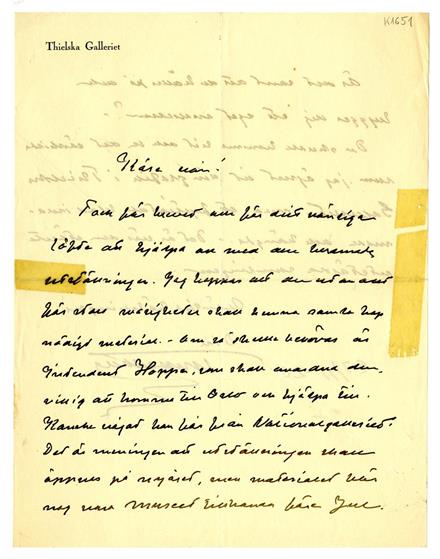 K1651
Thielska Galleriet
Kära vän!
Tack för brevet och för ditt vänliga
löfte att hjälpa oss med den
utställningen. Jag hoppas att du utan allt
för stora svårigheter skall kunna samla ihop
nödigt material. - Om så skulle behövas är
Intendent Hoppe, som skall
villig att komma till Oslo och hjälpa till.
Kanske något kan fås från Nationalgalleriet?
Det är meningen att utställningen skall
öppnas på nyåret, men materialet bör
nog vara museet tillhanda före Jul.